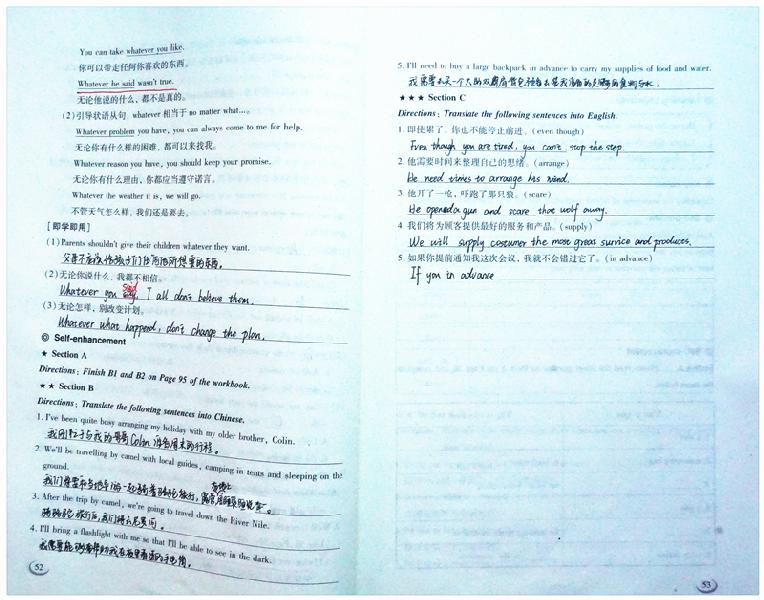 You can take whatever you like.
你可以带走任何你喜欢的东西。
Whatever he said wasn't true.
无论他说的什么，都不是真的。
(2) 引导状语从句，whatever 相当于 no matter what…。
Whatever problem you have, you can always come to me for help.
无论你有什么样的困难，都可以来找我。
Whatever reason you have, you should keep your promise.
无论你有什么理由，你都应当遵守诺言。
Whatever the weather is, we will go.
不管天气怎么样，我们还是要去。
[即学即用]
(1) Parents shouldn't give their children whatever they want.
父母不应该给孩子们任何他们想要的东西。
(2) 无论你说什么，我都不相信。
Whatever you said, I all don't believe them.
(3) 无论怎样，别改变计划。
Whatever what happend, don't change the plan.
◎ Self-enhancement
★ Section A
Directions: Finish B1 and B2 on Page 95 of the workbook.
★★ Section B
Directions: Translate the following sentences into Chinese.
1. I've been quite busy arranging my holiday with my older brother, Colin.
我刚忙于与我的哥哥Colin
2. We'll be travelling by camel with local guides, camping in tents and sleeping on the
ground.
我们将要和当地导游一起骑着骆驼旅行，
3. After the trip by camel, we're going to travel down the River Nile.
骑骆驼旅行后，我们将去尼罗河。
4. I'll bring a flashlight with me so that I'll be able to see in the dark.
我在
52
5. I'll need to buy a large backpack in advance to carry my supplies of food and water.
我需要去买一个大的双肩背包
★★★ Section C
Directions: Translate the following sentences into English.
1. 即使累了，你也不能停止前进。(even though)
Even though you are tired, you can't stop the step.
2. 他需要时间来整理自己的思绪。(arrange)
He need times to arrange his mind.
3. 他开了一枪，吓跑了那只狼。(scare)
He opened a gun and scare that wolf away.
4. 我们将为顾客提供最好的服务和产品。(supply)
We will supply costumer the most great survice and produces.
5. 如果你提前通知我这次会议，我就不会错过它了。(in advance)
If you in advance
53